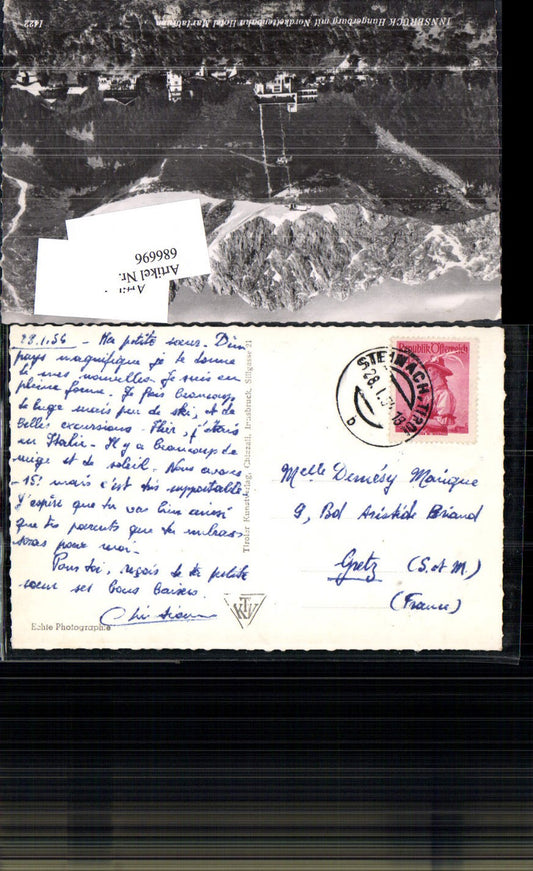 INNSBRUCK Hungerburg mit Nordkettenbahn Hotel Mariabrunn
1422
Artikel Nr.
686696
28.1.54 - Ma petite sœur - D'un
pays magnifique je te donne
mes nouvelles. Je suis en
pleine forme. Je fais beaucoup
de luge mais peu de ski, et de
belles excursions. Hier, j'étais
en Italie - Il y a beaucoup de
neige et de soleil. Nous avons
- 15° mais c'est très supportable
J'espère que tu vas bien ainsi
que tes parents que tu embras-
seras pour moi.
Pour toi, reçois de ta petite
sœur ses bons baisers.
Echte Photographie
Tiroler Kunstverlag, Chizzali, Innsbruck, Sillgasse 21
TKV
STEINACH, TIROL
28.I.5
18
b
Republik Österreich
Melle Demésy Monique
9, Bd Aristide Briand
Gretz (S. et M.)
(France)